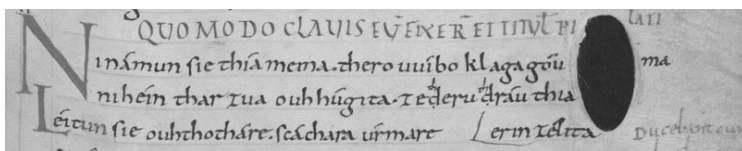 QUOMODO CLAVIS EU͂ FIXER͂ ET TITUL̄ PI LATI
Ninámun sie thiá meina. thero uuíbo klagagóu ma
nihéin thar zua ouh húgita. zederu dráu thia
Léitun sie ouhthotháre. scáchara úrmare Lerin zélita